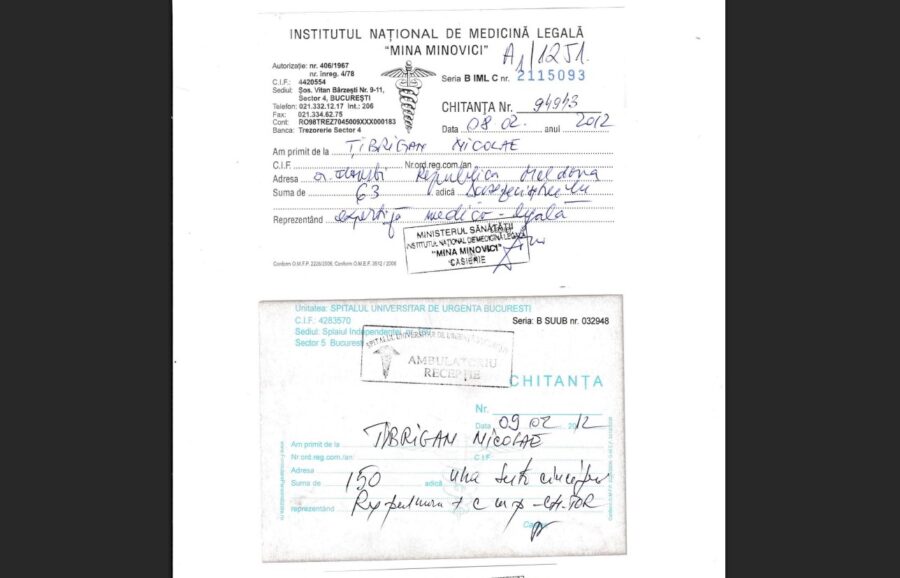 INSTITUTUL NAȚIONAL DE MEDICINĂ LEGALĂ
"MINA MINOVICI"
A1/1251.
Autorizație: nr. 406/1967
nr. înreg. 4/78
C.I.F.: 4420554
Sediul: Șos. Vitan Bârzești Nr. 9-11,
Sector 4, BUCUREȘTI
Telefon: 021.332.12.17 Int.: 206
Fax: 021.334.62.75
Cont: RO98TREZ7045009XXX000183
Banca: Trezorerie Sector 4
Seria B IML C nr. 2115093
CHITANȚA Nr. 94943
Data 08 02. anul 2012
Am primit de la ȚIBRIGAN NICOLAE
C.I.F. Nr.ord.reg.com./an
Adresa Republica Moldova
Suma de 63 adică
Reprezentând expertiză medico-legală
MINISTERUL SĂNĂTĂȚII
INSTITUTUL NAȚIONAL DE MEDICINĂ LEGALĂ
"MINA MINOVICI"
CASIERIE
Conform O.M.F.P. 2226/2006; Conform O.M.E.F. 3512 / 2008
Unitatea: SPITALUL UNIVERSITAR DE URGENTA BUCURESTI
C.I.F.: 4283570
Sediul: Splaiul Independentei, nr. 169
Sector 5 Bucuresti
Seria: B SUUB nr. 032948
SPITALUL UNIVERSITAR DE URGENȚĂ BUCUREȘTI
AMBULATORIU
RECEPȚIE
CHITANȚA
Nr.
Data 09 02 2012
Am primit de la ȚIBRIGAN NICOLAE
Nr ord.reg.com./an C.I.F.
Adresa
Suma de 150 adică una sută cincizeci
reprezentând